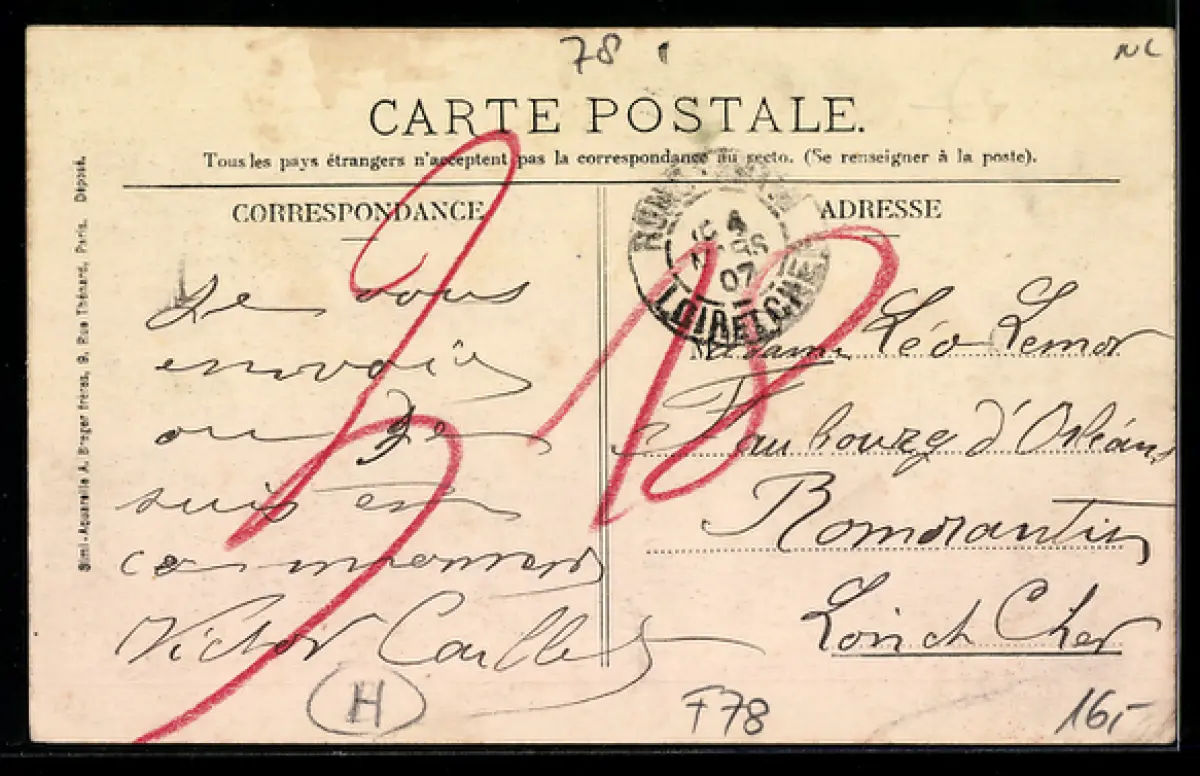 78
NC
CARTE POSTALE.
Tous les pays étrangers n'acceptent pas la correspondance au recto. (Se renseigner à la poste).
CORRESPONDANCE
Je vous
envoie
ou Je
suis en
ce moment
Victor Caillet
ADRESSE
4
MARS
07
LOIR ET CHER
Madame Léo Lemor
Faubourg d'Orléans
Romorantin
Loir et Cher
Simi-Aquarelle A. Breger frères, 9, Rue Thénard, Paris. Déposé.
H
F78
16,-